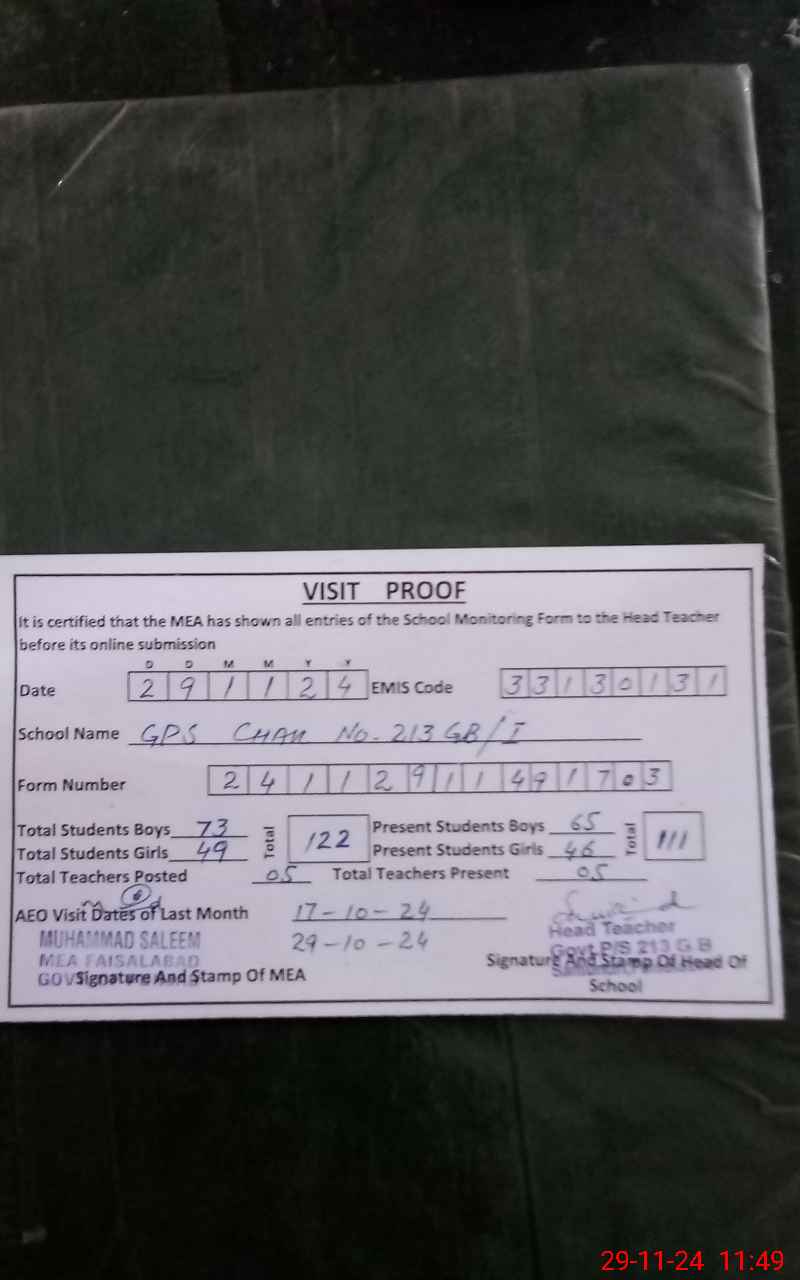 VISIT PROOF
It is certified that the MEA has shown all entries of the School Monitoring Form to the Head Teacher
before its online submission
D D M M Y Y
Date 2 9 1 1 2 4 EMIS Code 3 3 1 3 0 1 3 1
School Name GPS CHAK No. 213 GB/I
Form Number 2 4 1 1 2 9 1 1 4 9 1 7 0 3
Total Students Boys 73 Total 122 Present Students Boys 65 Total 111
Total Students Girls 49 Present Students Girls 46
Total Teachers Posted 05 Total Teachers Present 05
AEO Visit Dates of Last Month 17-10-24
29-10-24
MUHAMMAD SALEEM
MEA FAISALABAD
GOV
Signature And Stamp Of MEA
Head Teacher
Govt P/S 213 G B
Signature And Stamp Of Head Of
School
29-11-24 11:49